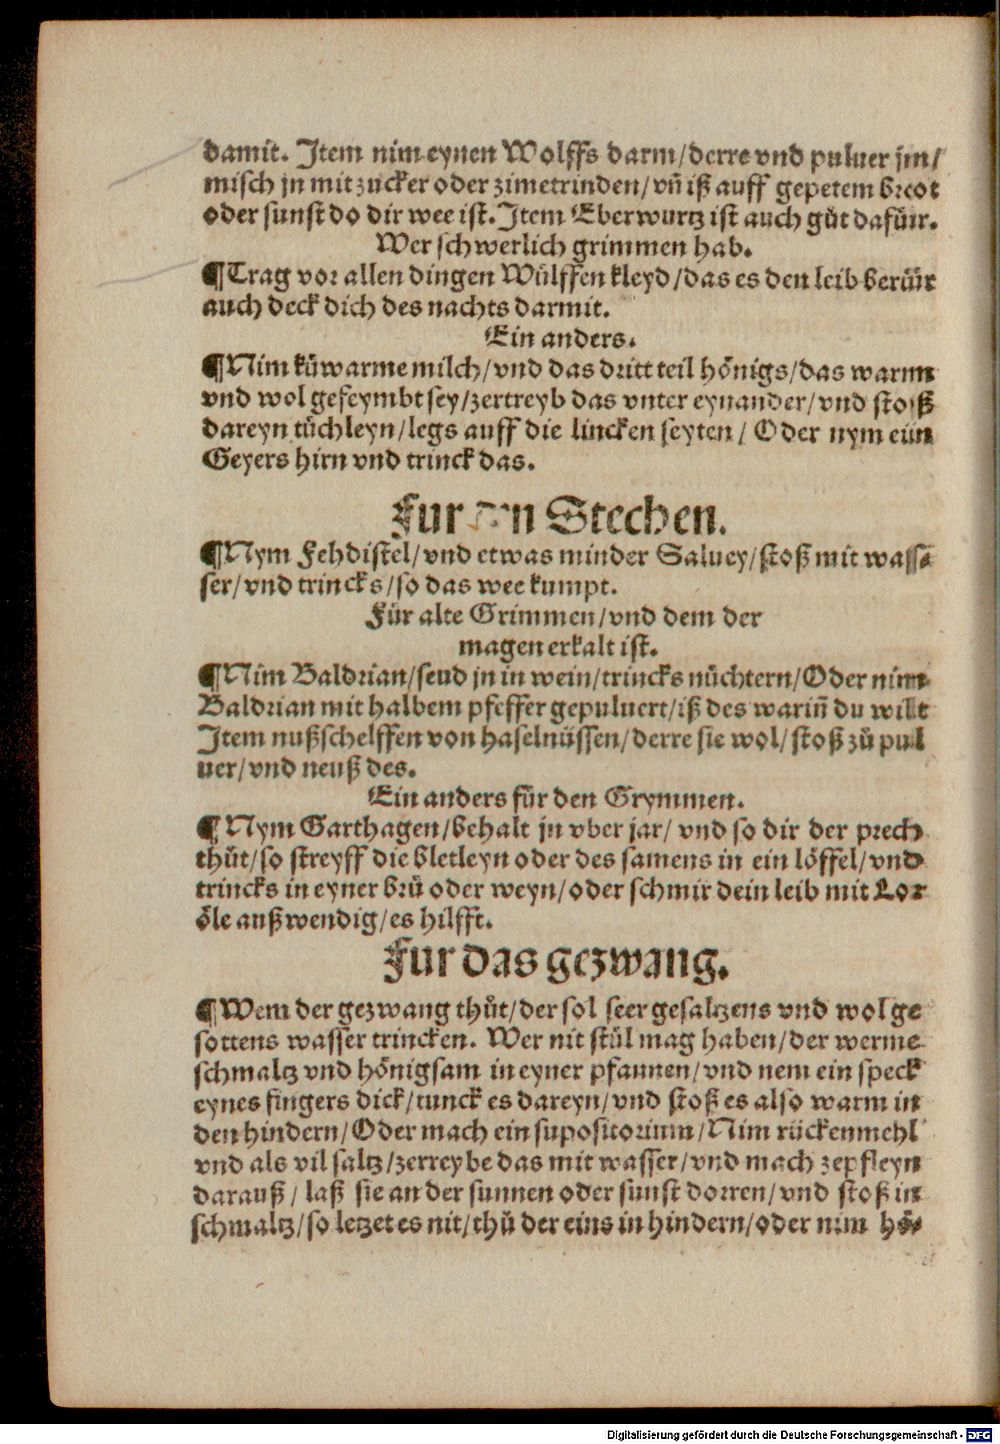 damit. Item nim eynen Wolffs darm/derre vnd puluer jm/
misch jn mit zucker oder zimetrinden/vñ iß auff gepetem breot
oder sunst do dir wee ist. Item Eberwurtz ist auch gůt dafüir.
Wer schwerlich grimmen hab.
¶Trag vor allen dingen Wülffen kleyd/das es den leib berüir
auch deck dich des nachts darmit.
Ein anders.
¶Nim küwarme milch/vnd das dritt teil hönigs/das warm
vnd wol gefeymbt sey/zertreyb das vnter eynander/vnd stoß
dareyn tüchleyn/legs auff die lincken seyten/ Oder nym ein
Geyers hirn vnd trinck das.
Fur Stechen.
¶Nym Fehdistel/vnd etwas minder Saluey/stoß mit wass⸗
ser/vnd trincks/so das wee kumpt.
Für alte Grimmen/vnd dem der
magen erkalt ist.
¶Nim Baldrian/seud jn in wein/trincks nüchtern/Oder nim
Baldrian mit halbem pfeffer gepuluert/iß des wariñ du wilt
Item nußschelffen von haselnüssen/derre sie wol/stoß zů pul
uer/vnd neuß des.
Ein anders für den Grymmen.
¶Nym Garthagen/behalt jn vber jar/ vnd so dir der prech
thůt/so streyff die bletleyn oder des samens in ein löffel/vnd
trincks in eyner brü oder weyn/oder schmir dein leib mit Lor
öle außwendig/es hilfft.
Fur das gezwang.
¶Wem der gezwang thůt/der sol seer gesaltzens vnd wol ge
sottens wasser trincken. Wer nit stůl mag haben/der werme
schmaltz vnd hönigsam in eyner pfannen/vnd nem ein speck
eynes fingers dick/tunck es dareyn/vnd stoß es also warm in
den hindern/Oder mach ein supositorium/Nim rückenmehl
vnd als vil saltz/zerreybe das mit wasser/vnd mach zepfleyn
darauß/ laß sie an der sunnen oder sunst dorren/vnd stoß in
schmaltz/so letzet es nit/thů der eins in hindern/oder nim hö⸗
Digitalisierung gefördert durch die Deutsche Forschungsgemeinschaft - DFG